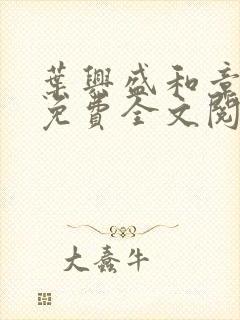 葉興盛和章
免費全文閱
大蠢牛